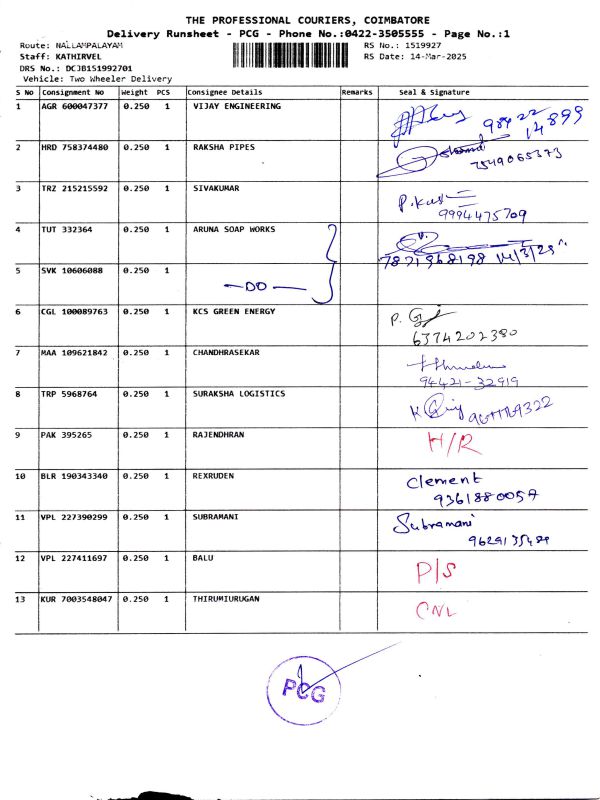 THE PROFESSIONAL COURIERS, COIMBATORE
Delivery Runsheet - PCG - Phone No.:0422-3505555 - Page No.:1
Route: NALLAMPALAYAM RS No.: 1519927
Staff: KATHIRVEL RS Date: 14-Mar-2025
DRS No.: DCJB1S1992701
Vehicle: Two Wheeler Delivery
S No Consignment No Weight PCS Consignee Details Remarks Seal & Signature
1 AGR 600047377 0.250 1 VIJAY ENGINEERING 98422 14899
2 HRD 758374480 0.250 1 RAKSHA PIPES 7549065373
3 TRZ 215215592 0.250 1 SIVAKUMAR 9994475709
4 TUT 332364 0.250 1 ARUNA SOAP WORKS 7871968198 14/3/25
5 SVK 10606088 0.250 1 —DO—
6 CGL 100089763 0.250 1 KCS GREEN ENERGY 6374202380
7 MAA 109621842 0.250 1 CHANDHRASEKAR 94421-32919
8 TRP 5968764 0.250 1 SURAKSHA LOGISTICS
9 PAK 395265 0.250 1 RAJENDHRAN H/R
10 BLR 190343340 0.250 1 REXRUDEN Clement
9361880057
11 VPL 227390299 0.250 1 SUBRAMANI Subramani
12 VPL 227411697 0.250 1 BALU P/S
13 KUR 7003548047 0.250 1 THIRUMIURUGAN CNL
PCG